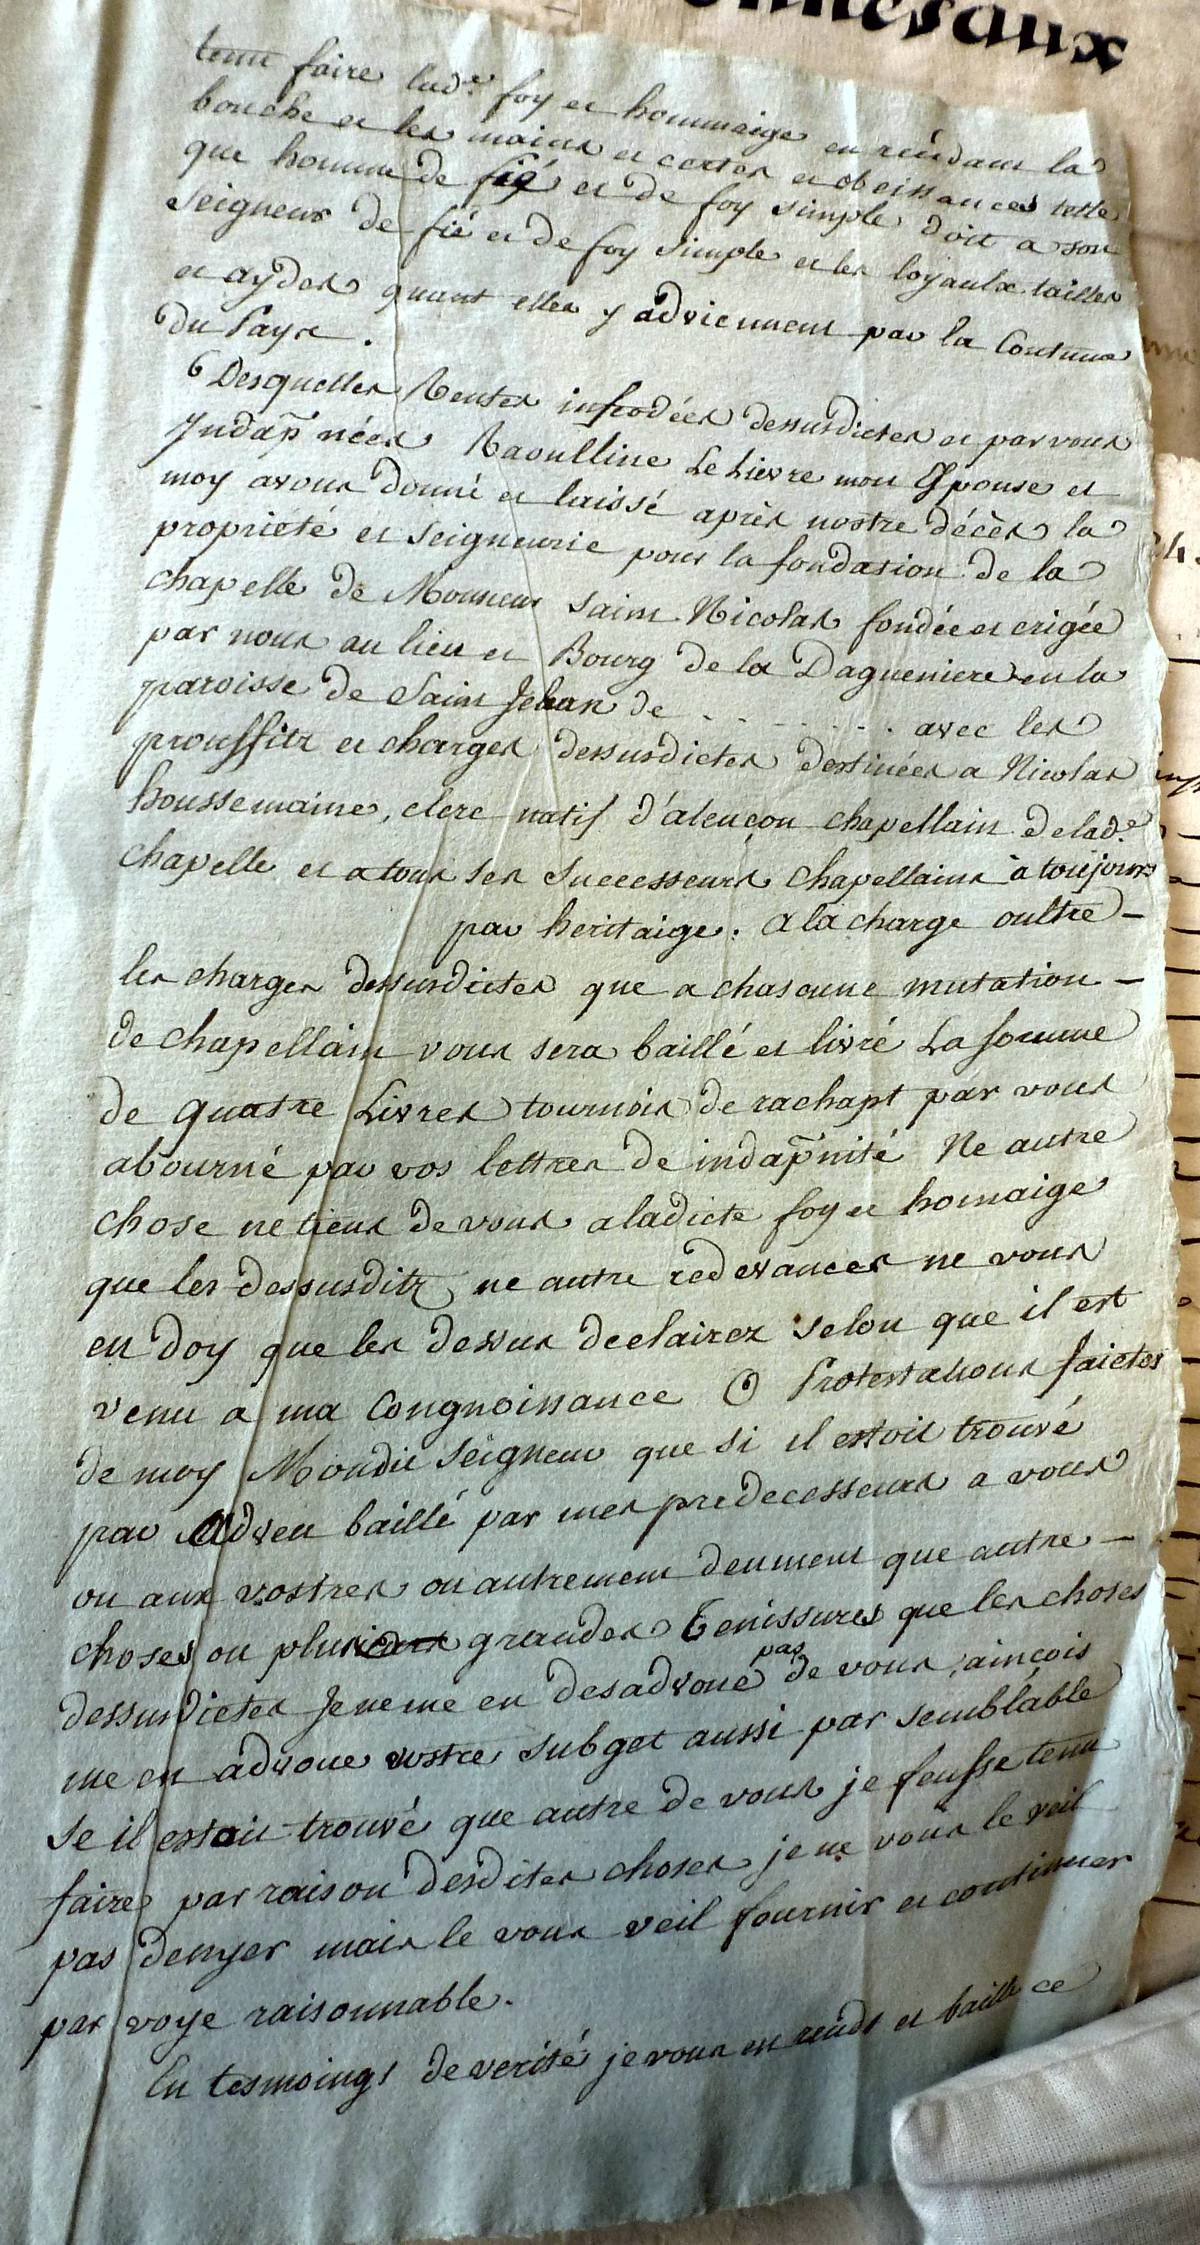 tenu faire lad.e foy et hommaige en rendant la
bouche et les mains et certes et obeissances telle
que homme de fié et de foy simple doit a son
seigneur de fié et de foy simple et les loyaulx tailles
et aydes quant elles y adviennent par la Coutume
du Pays.
6 Desquelles Rentes infeodées dessusdictes et par vous
Indap̃nées Raoulline Le Lievre mon Epouse et
moy avons donné et laissé après nostre décès la
propriété et seigneurie pour la fondation de la
chapelle de Monsieur saint Nicolas fondée et erigée
par nous au lieu et Bourg de la Dagueniere en la
paroisse de Saint Jehan de . . . . . . . . avec les
prouffitz et charges dessusdictes destinées a Nicolas
houssemaine, clerc natif d'alençon chapellain de lad.e
chapelle et a tous ses Successeurs chapellains à toujours
par heritaige. a la charge oultre -
les charges dessusdictes que a chascune mutation -
de chapellain vous sera baillé et livré La somme
de quatre Livres tournois de rachapt par vous
abourné par vos lettres de indap̃nité Ne autre
chose ne tiens de vous a ladicte foy et homaige
que les dessusditz ne autre redevances ne vous
en doy que les dessus declairez selon que il est
venu a ma Congnoissance O Protestations faictes
de moy Mondit Seigneur que si il estoit trouvé
par Adveu baillé par mes predecesseurs a vous
ou aux vostres ou autrement deument que autre -
choses ou plus grandes Tenissures que les choses
dessusdictes Je ne me en desadvoue pas de vous, ainçois
me en advoue vostre subget aussi par semblable
se il estoit trouvé que autre de vous je feusse tenu
faire par raison desdites choses je ne vous le veil
pas denyer mais le vous veil fournir et continuer
par voye raisonnable.
En tesmoings de verité je vous en rends et baille ce